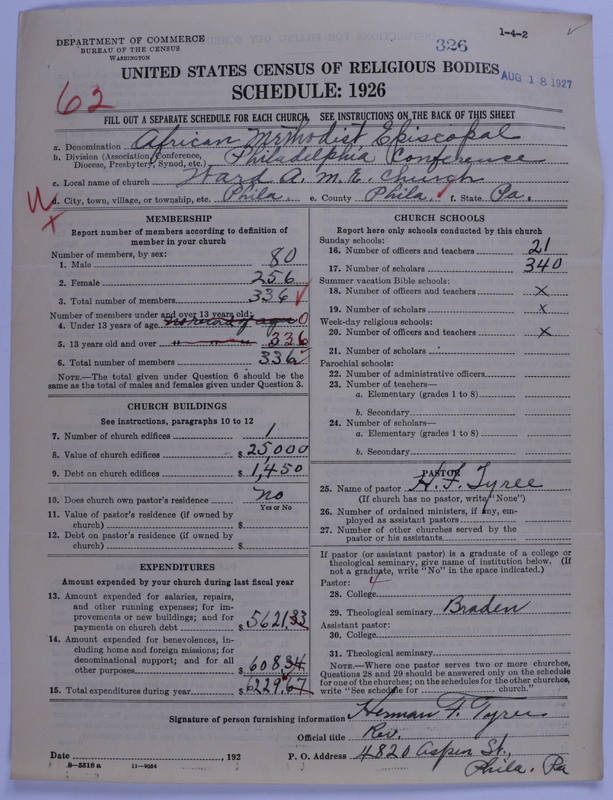 DEPARTMENT OF COMMERCE
BUREAU OF THE CENSUS
WASHINGTON
326
1-4-2
UNITED STATES CENSUS OF RELIGIOUS BODIES
AUG 18 1927
SCHEDULE: 1926
62
FILL OUT A SEPARATE SCHEDULE FOR EACH CHURCH. SEE INSTRUCTIONS ON THE BACK OF THIS SHEET
a. Denomination African Methodist Episcopal
b. Division (Association, Conference, Diocese, Presbytery, Synod, etc.) Philadelphia Conference
c. Local name of church Ward A. M. E. Church
d. City, town, village, or township, etc. Phila. e. County Phila. f. State Pa.
MEMBERSHIP
Report number of members according to definition of
member in your church
Number of members, by sex:
1. Male 80
2. Female 256
3. Total number of members 336
Number of members under and over 13 years old:
4. Under 13 years of age no record of age 0
5. 13 years old and over " " " 336
6. Total number of members 336
NOTE.—The total given under Question 6 should be
same as the total of males and females given under Question 3.
CHURCH BUILDINGS
See instructions, paragraphs 10 to 12
7. Number of church edifices 1
8. Value of church edifices $ 25,000
9. Debt on church edifices $ 1,450
10. Does church own pastor's residence no
Yes or No
11. Value of pastor's residence (if owned by
church) $
12. Debt on pastor's residence (if owned by
church) $
EXPENDITURES
Amount expended by your church during last fiscal year
13. Amount expended for salaries, repairs,
and other running expenses; for im-
provements or new buildings; and for
payments on church debt $ 5621.33
14. Amount expended for benevolences, in-
cluding home and foreign missions; for
denominational support; and for all
other purposes $ 608.34
15. Total expenditures during year $ 6229.67
CHURCH SCHOOLS
Report here only schools conducted by this church
Sunday schools:
16. Number of officers and teachers 21
17. Number of scholars 340
Summer vacation Bible schools:
18. Number of officers and teachers x
19. Number of scholars x
Week-day religious schools:
20. Number of officers and teachers x
21. Number of scholars
Parochial schools:
22. Number of administrative officers
23. Number of teachers—
a. Elementary (grades 1 to 8)
b. Secondary
24. Number of scholars—
a. Elementary (grades 1 to 8)
b. Secondary
PASTOR
25. Name of pastor H. F. Tyree
(If church has no pastor, write "None")
26. Number of ordained ministers, if any, em-
ployed as assistant pastors
27. Number of other churches served by the
pastor or his assistants
If pastor (or assistant pastor) is a graduate of a college or
theological seminary, give name of institution below. (If
not a graduate, write "No" in the space indicated.)
Pastor: 4
28. College
29. Theological seminary Braden
Assistant pastor:
30. College
31. Theological seminary
NOTE.—Where one pastor serves two or more churches,
Questions 28 and 29 should be answered only on the schedule
for one of the churches; on the schedules for the other churches,
write "See schedule for church."
Signature of person furnishing information Herman F. Tyree
Official title Rev.
Date , 192 P. O. Address 4820 Aspen St.,
Phila. Pa
8-5518 a 11-9064